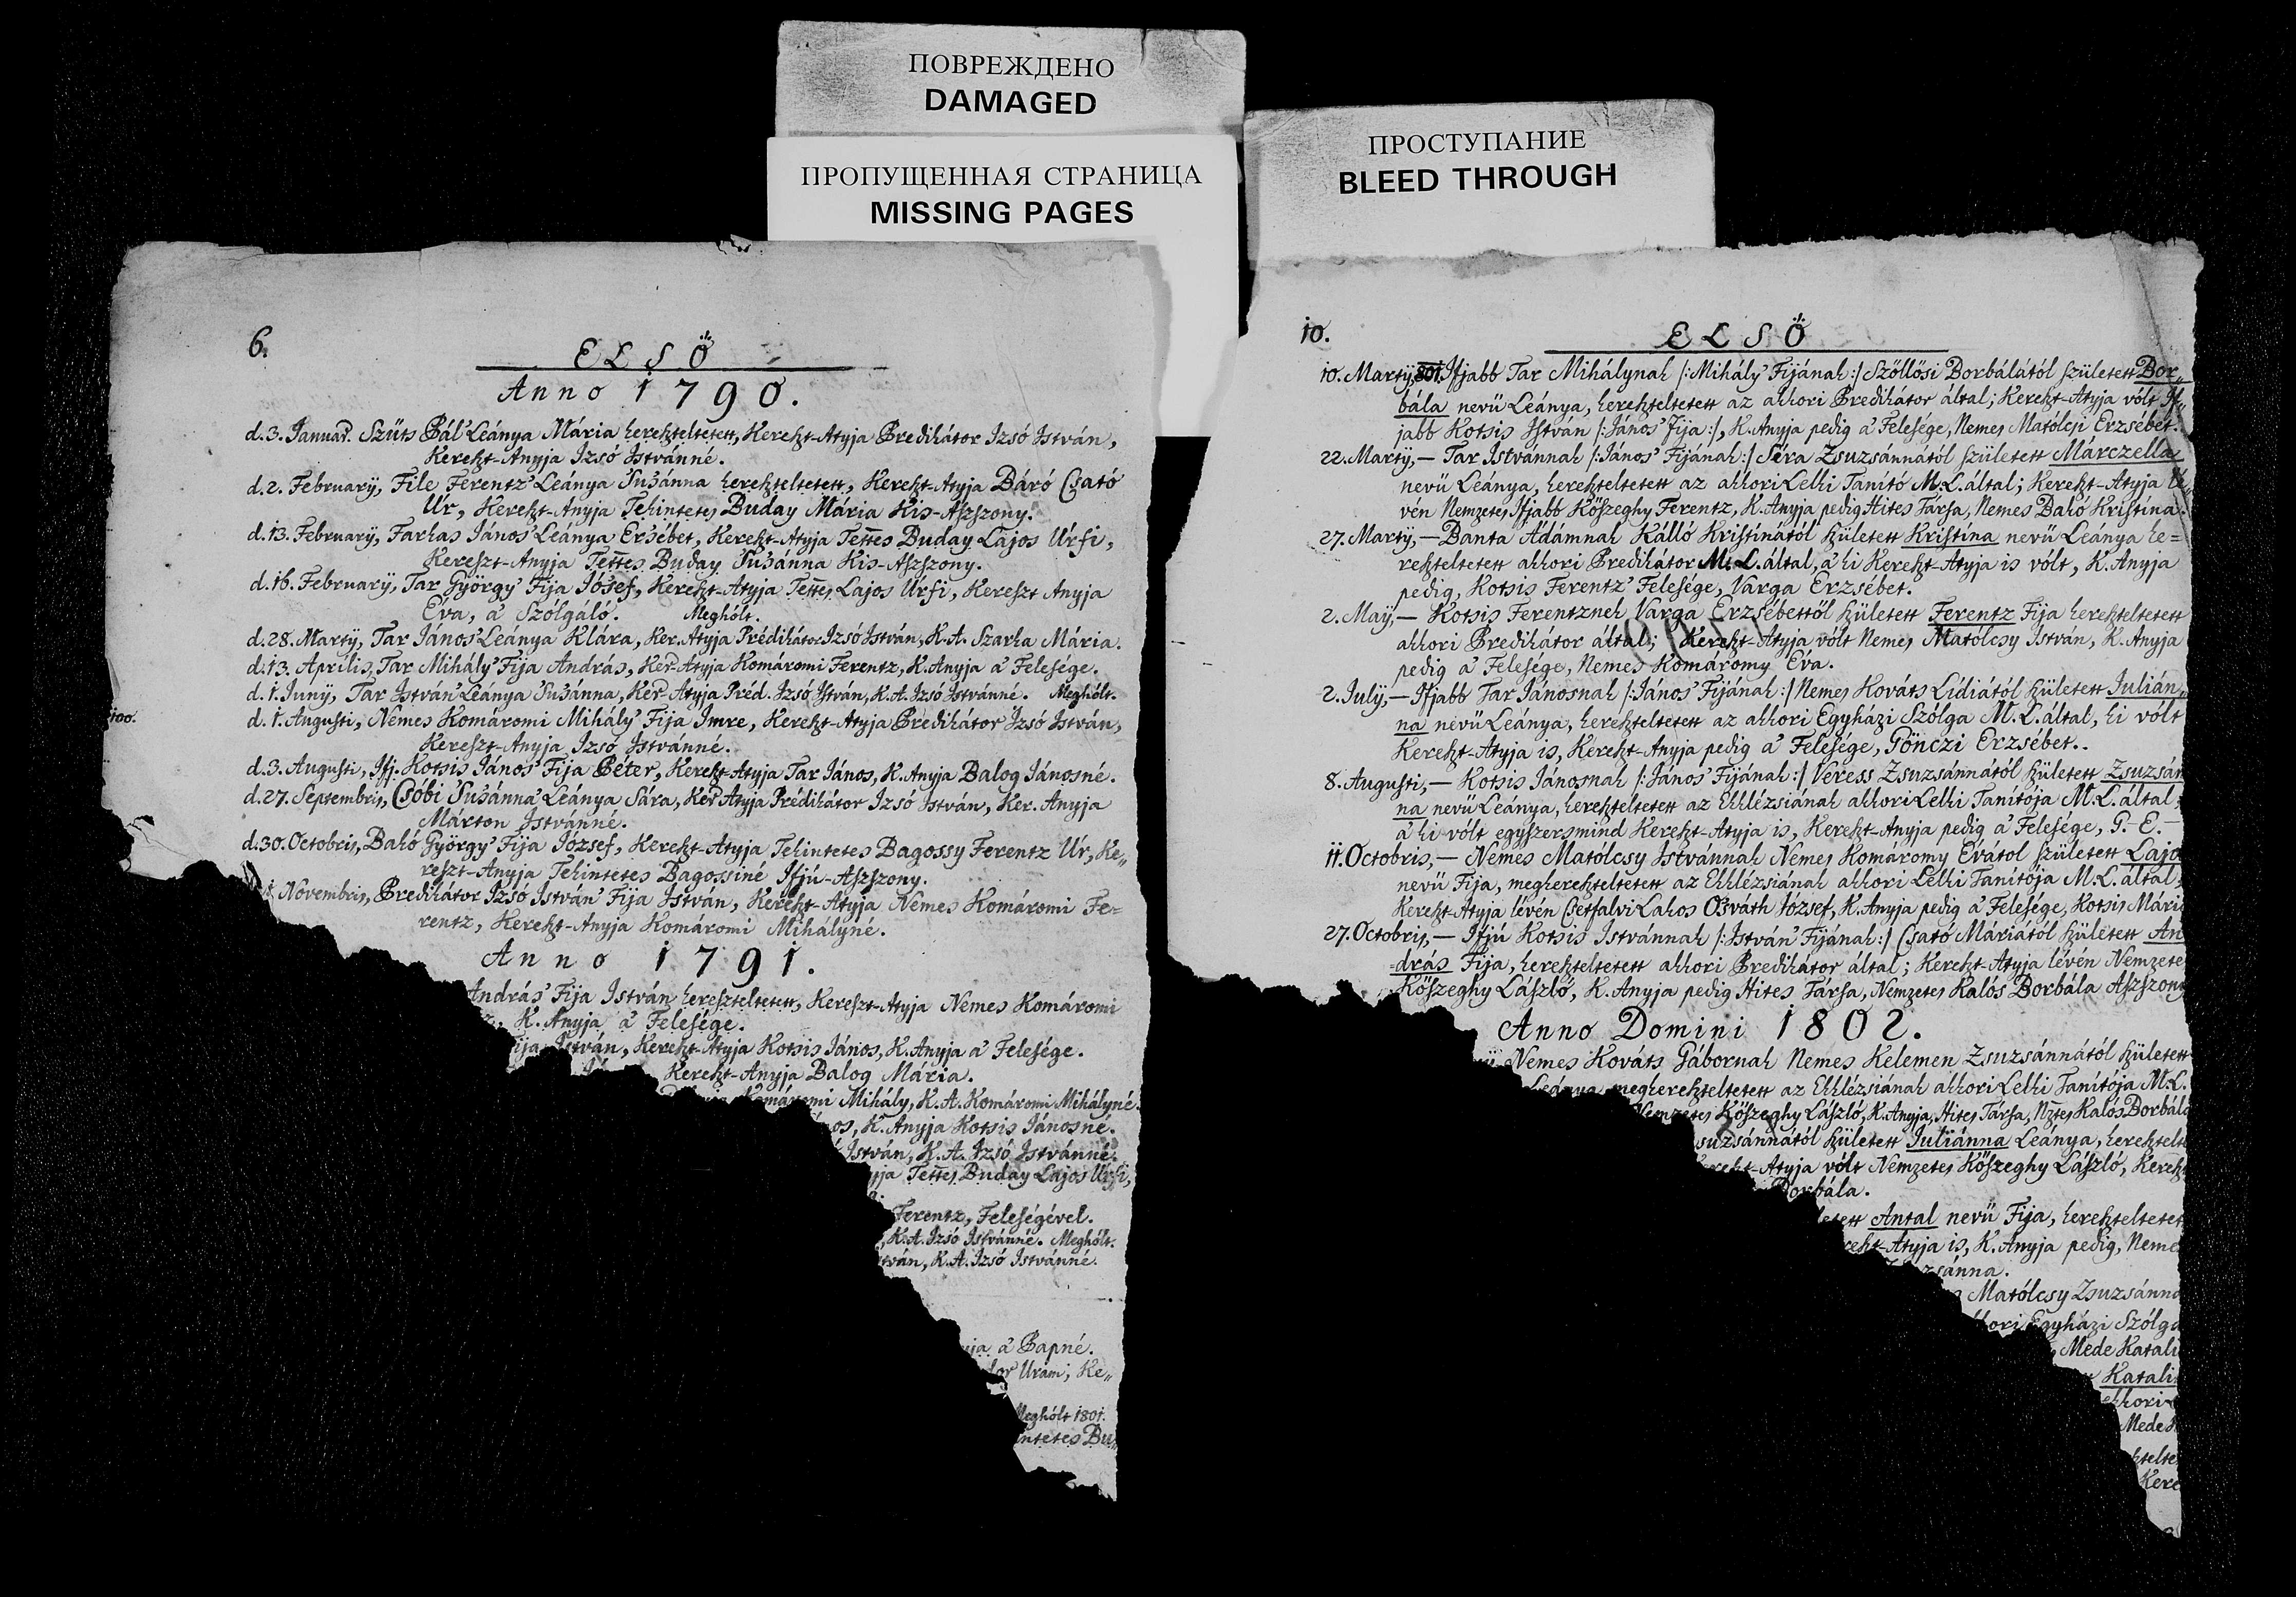 ПОВРЕЖДЕНО
DAMAGED
ПРОПУЩЕННАЯ СТРАНИЦА
MISSING PAGES
ПРОСТУПАНИЕ
BLEED THROUGH
6.
ELSŐ
Anno 1790.
d.3. Januar. Szüts Pál' Leánya Mária kereszteltetett, Kereszt-Atyja Predikátor Izsó István,
Kereszt-Anyja Izsó Istvánné.
d.2. February, File Ferentz' Leánya Susánna kereszteltetett, Kereszt-Atyja Báró Csató
Úr, Kereszt-Anyja Tekintetes Buday Mária Kis-Aszszony.
d.13. February, Farkas János' Leánya Ersébet, Kereszt-Atyja Tettes Buday Lajos Úrfi,
Kereszt-Anyja Tettes Buday Susánna Kis-Aszszony.
d.16. February, Tar György' Fija Jósef, Kereszt-Atyja Tettes Lajos Úrfi, Kereszt Anyja
Éva, a' Szólgáló. Meghólt.
d.28. Marty, Tar János' Leánya Klára, Ker. Atyja Prédikátor Izsó István, K.A. Szarka Mária.
d.13. Aprilis, Tar Mihály' Fija András, Ker. Atyja Komáromi Ferentz, K. Anyja a' Felesége.
d.1. Juny, Tar István' Leánya Susánna, Ker Atyja Préd. Izsó István, K.A. Izsó Istvánné. Meghólt.
100.
d.1. Augusti, Nemes Komáromi Mihály' Fija Imre, Kereszt-Atyja Predikátor Izsó István,
Kereszt-Anyja Izsó Istvánné.
d.3. Augusti, Ifj. Kotsis János' Fija Péter, Kereszt-Atyja Tar János, K. Anyja Balog Jánosné.
d.27. Septembris, Csóbi Susánna' Leánya Sára, Ker Atyja Prédikátor Izsó István, Ker. Anyja
Márton Istvánné.
d.30. Octobris, Bakó György' Fija József, Kereszt-Atyja Tekintetes Bagossy Ferentz Úr, Ke„
reszt-Anyja Tekintetes Bagossiné Ifjú-Aszszony.
Novembris, Predikátor Izsó István' Fija István, Kereszt-Atyja Nemes Komáromi Fe=
rentz, Kereszt-Anyja Komáromi Mihályné.
Anno 1791.
András' Fija István kereszteltetett, Kereszt-Atyja Nemes Komáromi
K. Anyja a' Felesége.
István, Kereszt-Atyja Kotsis János, K. Anyja a' Felesége.
Kereszt-Anyja Balog Mária.
Komáromi Mihály, K.A. Komáromi Mihályné.
K. Anyja Kotsis Jánosné.
István, K.A. Izsó Istvánné.
Tettes Buday Lajos Úrfi,
Ferentz, Feleségével.
K.A. Izsó Istvánné. Meghólt.
K.A. Izsó Istvánné.
a' Papné.
Uram, Ke„
Meghólt 1801.
Bu„
10.
ELSŐ
10. Marty, 801. Ifjabb Tar Mihálynak /:Mihály' Fijának:/ Szöllösi Borbálától született Bor„
bála nevü Leánya, kereszteltetett az akkori Predikátor által; Kereszt-Atyja vólt If„
jabb Kotsis István /:János' Fija:/, K. Anyja pedig a' Felesége, Nemes Matólcsi Erzsébet.
22. Marty, — Tar Istvánnak /:János' Fijának:/ Séra Zsuzsánnától született Márczella
nevü Leánya, kereszteltetett az akkori Lelki Tanító M.L. által; Kereszt-Atyja lé„
vén Nemzetes Ifjabb Kőszeghy Ferentz, K. Anyja pedig Hites Társa, Nemes Bakó Kristína.
27. Marty, — Banta Ádámnak Kálló Kristínától született Kristína nevü Leánya ke=
reszteltetett akkori Predikátor M.L. által, a' ki Kereszt-Atyja is vólt, K. Anyja
pedig, Kotsis Ferentz' Felesége, Varga Erzsébet.
2. May, — Kotsis Ferentznek Varga Erzsébettől született Ferentz Fija kereszteltetett
akkori Predikátor által; Kereszt-Atyja vólt Nemes Matólcsy István, K. Anyja
pedig a' Felesége, Nemes Komáromy Éva.
2. July, — Ifjabb Tar Jánosnak /:János' Fijának:/ Nemes Kováts Lídiától született Julián„
na nevü Leánya, kereszteltetett az akkori Egyházi Szólga M.L. által, ki vólt
Kereszt-Atyja is, Kereszt-Anyja pedig a' Felesége, Pönczi Erzsébet.
8. Augusti, — Kotsis Jánosnak /:János' Fijának:/ Veress Zsuzsánnától született Zsuzsán
na nevü Leánya, kereszteltetett az Ekklézsiának akkori Lelki Tanítója M.L. által,
a' ki vólt egyszersmind Kereszt-Atyja is, Kereszt-Anyja pedig a' Felesége, P. E.
11. Octobris, — Nemes Matólcsy Istvánnak Nemes Komáromy Évától született Lajo
nevü Fija, megkereszteltetett az Ekklézsiának akkori Lelki Tanítója M.L. által,
Kereszt-Atyja lévén Csetfalvi Lakos Osváth József, K. Anyja pedig a' Felesége, Kotsis Mári
27. Octobris, — Ifjú Kotsis Istvánnak /:István' Fijának:/ Csató Máriától született An
=drás Fija, kereszteltetett akkori Predikátor által; Kereszt-Atyja lévén Nemzete
Kőszeghy László, K. Anyja pedig Hites Társa, Nemzetes Kalós Borbála Aszszony
Anno Domini 1802.
Nemes Kováts Gábornak Nemes Kelemen Zsuzsánnától született
Leánya megkereszteltetett az Ekklézsiának akkori Lelki Tanítója M.L.
Nemzetes Kőszeghy László, K. Anyja, Hites Társa, Nztes Kalós Borbála
suzsánnától született Juliánna Leánya, keresztelt
Kereszt-Atyja vólt Nemzetes Kőszeghy László, Keresz
Borbála.
Antal nevü Fija, kereszteltetet
Kereszt-Atyja is, K. Anyja pedig, Neme
zsánna.
Matólcsy Zsuzsánna
akkori Egyházi Szólga
Mede Katali
Katali
akkori
Mede
Kere